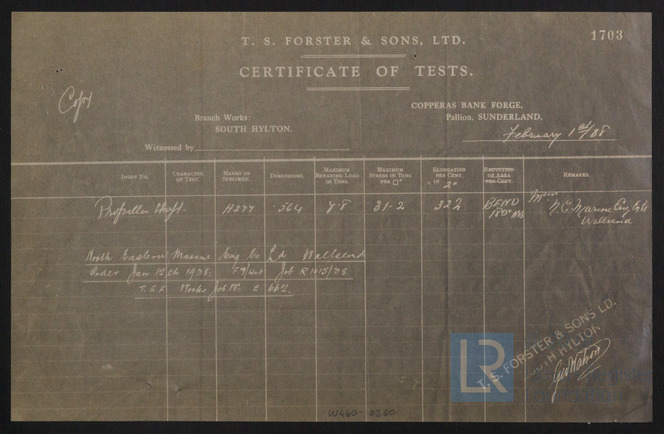 T. S. FORSTER & SONS, LTD.
1703
CERTIFICATE OF TESTS.
Copy
Branch Works:
SOUTH HYLTON.
COPPERAS BANK FORGE,
Pallion, SUNDERLAND,
February 1st/38
Witnessed by
INDEX NO. CHARACTER OF TEST. MARKS ON SPECIMEN. DIMENSIONS. MAXIMUM BREAKING LOAD IN TONS. MAXIMUM STRESS IN TONS PER □" ELONGATION PER CENT. IN 2" REDUCTION OF AREA PER CENT. REMARKS.
Propeller Shaft. H277 .564 7.8 31-2 32% BEND 180° N.E. Marine Eng Co Ld
Wallsend
North Eastern Marine Eng Co Ld Wallsend
Order Jan 12th 1938. Job R 1015/38
T.S.F. Works Job No. E 662.
T. S. FORSTER & SONS LD.
SOUTH HYLTON
Geo Watson
LR
W460-0260